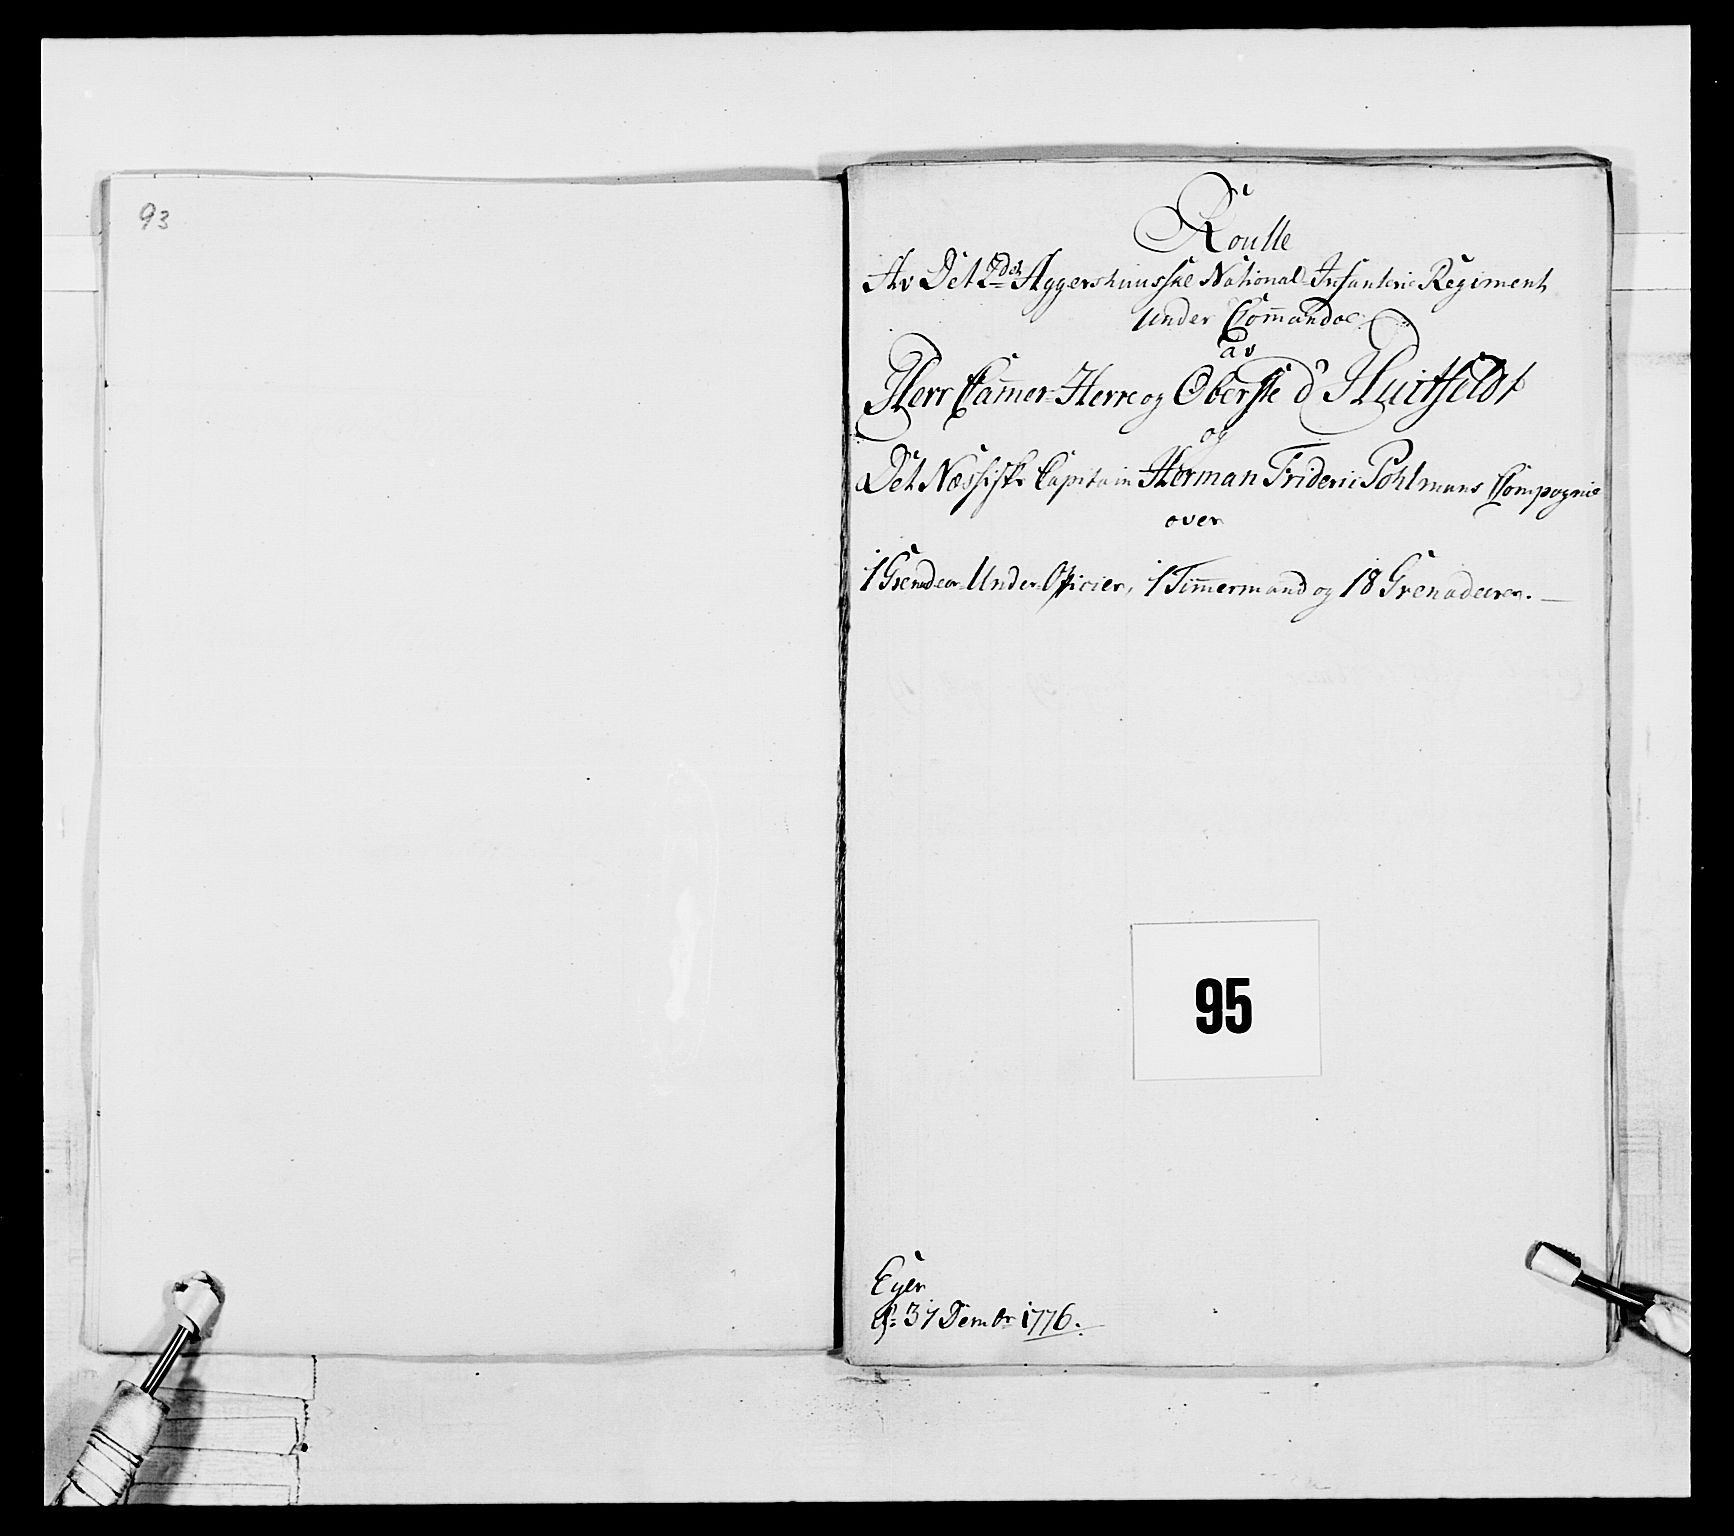 93
Roulle
Av Det 2det Aggershuusske National Infanterie Regiment
Under Commandoe
av
Herr Cam̄er-Herre og Oberste d' Huitfeldt
og
Det Næssiske Capitain Herman Frideric Pohlmans Compagnie
over
1 Grenadeer-Under-Officier, 1 Tim̄ermand og 18 Grenadeerer.
95
Eger
31 Decembr 1776.